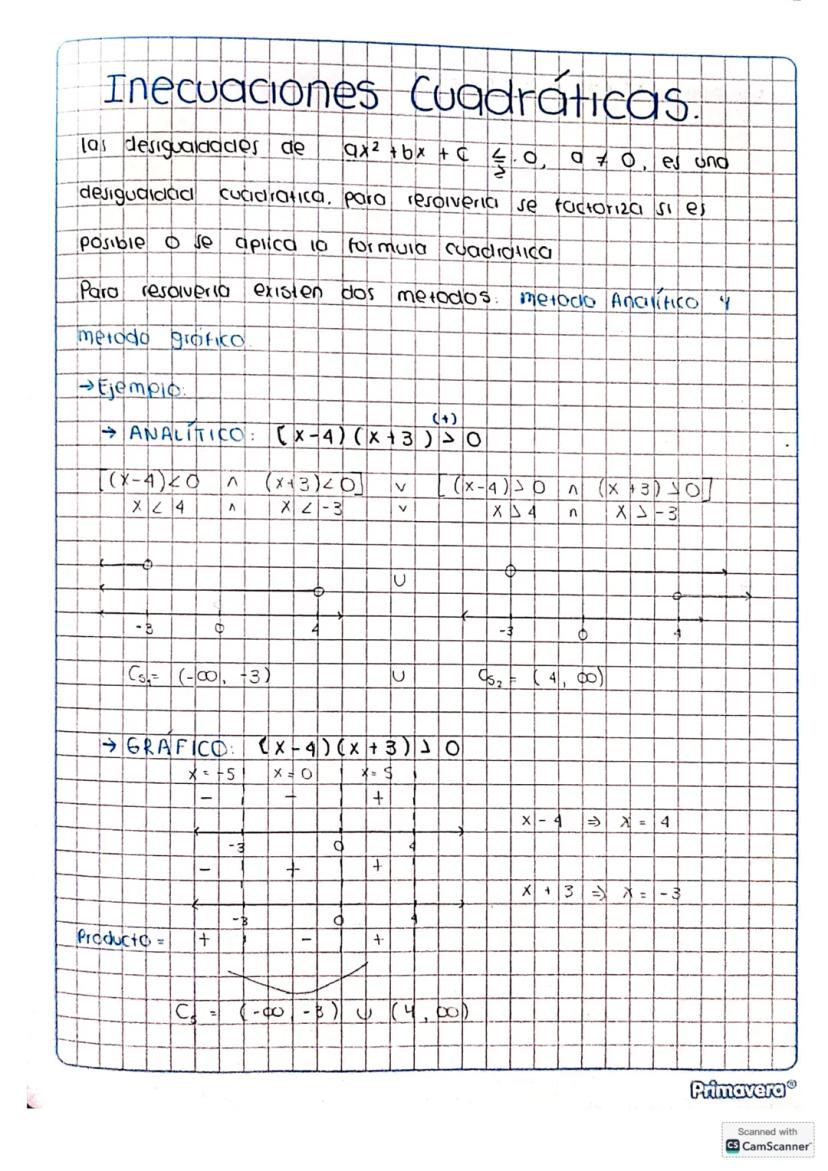 Inecuaciones Cuadráticas.
las desigualdades de ax² + bx + c ≤≥ 0, a ≠ 0, es una
desigualdad cuadratica, para resolverla se factoriza si es
posible o se aplica la formula cuadratica
Para resolverla existen dos metodos: metodo Analítico y
metodo gráfico.
→ Ejemplo:
(+)
→ ANALÍTICO: (x-4)(x+3) > 0
[(x-4)<0 ∧ (x+3)<0] ∨ [(x-4)>0 ∧ (x+3)>0]
x < 4 ∧ x < -3 ∨ x > 4 ∩ x > -3
∪
-3 0 4 -3 0 4
Cs₁= (-∞, -3) ∪ Cs₂ = (4, ∞)
→ GRÁFICO: (x-4)(x+3) > 0
x = -5 x = 0 x = 5
- - +
x - 4 ⇒ x = 4
-3 0 4
- + +
x + 3 ⇒ x = -3
-3 0 4
Producto = + - +
Cs = (-∞, -3) ∪ (4, ∞)
Primavera®
Scanned with
CS CamScanner